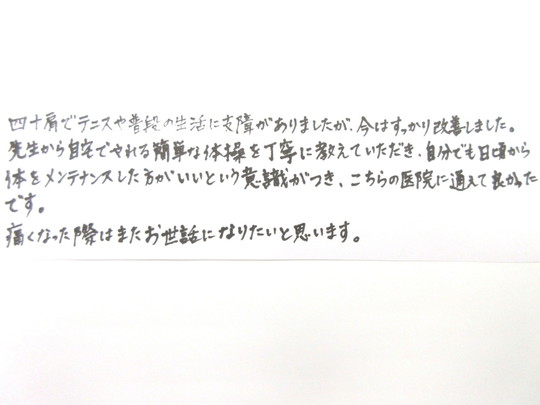 四十肩でテニスや普段の生活に支障がありましたが、今はすっかり改善しました。
先生から自宅でやれる簡単な体操を丁寧に教えていただき、自分でも日頃から
体をメンテナンスした方がいいという意識がつき、こちらの医院に通えて良かった
です。
痛くなった際はまたお世話になりたいと思います。